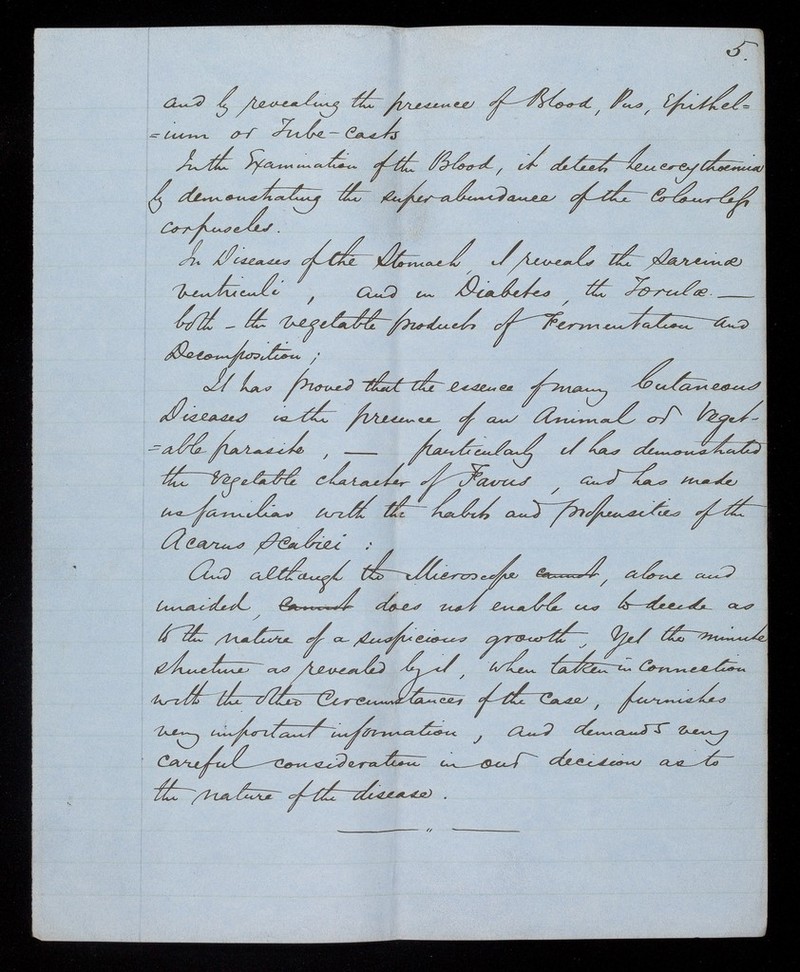 5.
and by revealing the presence of Blood, Pus, Epithel=
=ium or Tube-casts
In the Examination of the Blood, it detects Leucocythœmia
by demonstrating the superabundance of the Colourless
corpuscles.
In Diseases of the Stomach, it reveals the Sarcinæ
ventriculi, and in Diabetes, the Torulæ. —
both – the vegetable products of Fermentation and
Decomposition;
It has proved that the essence of many Cutaneous
Diseases is the presence of an Animal or Veget-
=able parasite, — particularly it has demonstrated
the vegetable character of Favus, and has made
us familiar with the habits and propensities of the
Acarus Scabiei :
And although the Microscope cannot, alone and
unaided, cannot does not enable us to decide as
to the nature of a suspicious growth, Yet the minute
structure as revealed by it, when taken in connection
with the other Circumstances of the case, furnishes
very important information, and demands very
careful consideration in our decision as to
the nature of the disease.